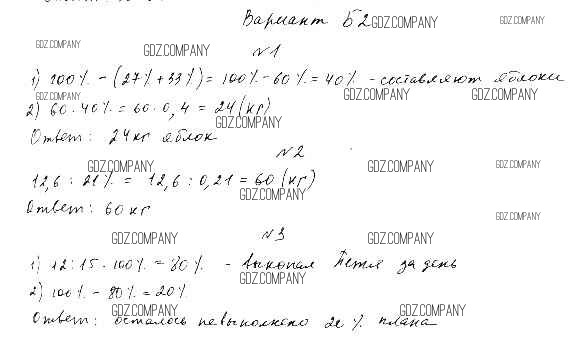 Вариант Б2
GDZ.COMPANY
GDZ.COMPANY
GDZ.COMPANY
GDZ.COMPANY
№1
1) 100% - (27% + 33%) = 100% - 60% = 40% - составляют яблоки
GDZ.COMPANY
GDZ.COMPANY
GDZ.COMPANY
2) 60 · 40% = 60 · 0,4 = 24 (кг)
GDZ.COMPANY
Ответ: 24 кг яблок
№2
GDZ.COMPANY
GDZ.COMPANY
GDZ.COMPANY
12,6 : 21% = 12,6 : 0,21 = 60 (кг)
GDZ.COMPANY
Ответ: 60 кг
GDZ.COMPANY
№3
GDZ.COMPANY
GDZ.COMPANY
1) 12 : 15 · 100% = 80% - выкопал Петя за день
GDZ.COMPANY
2) 100% - 80% = 20%
GDZ.COMPANY
GDZ.COMPANY
Ответ: осталось невыполнено 20 % плана